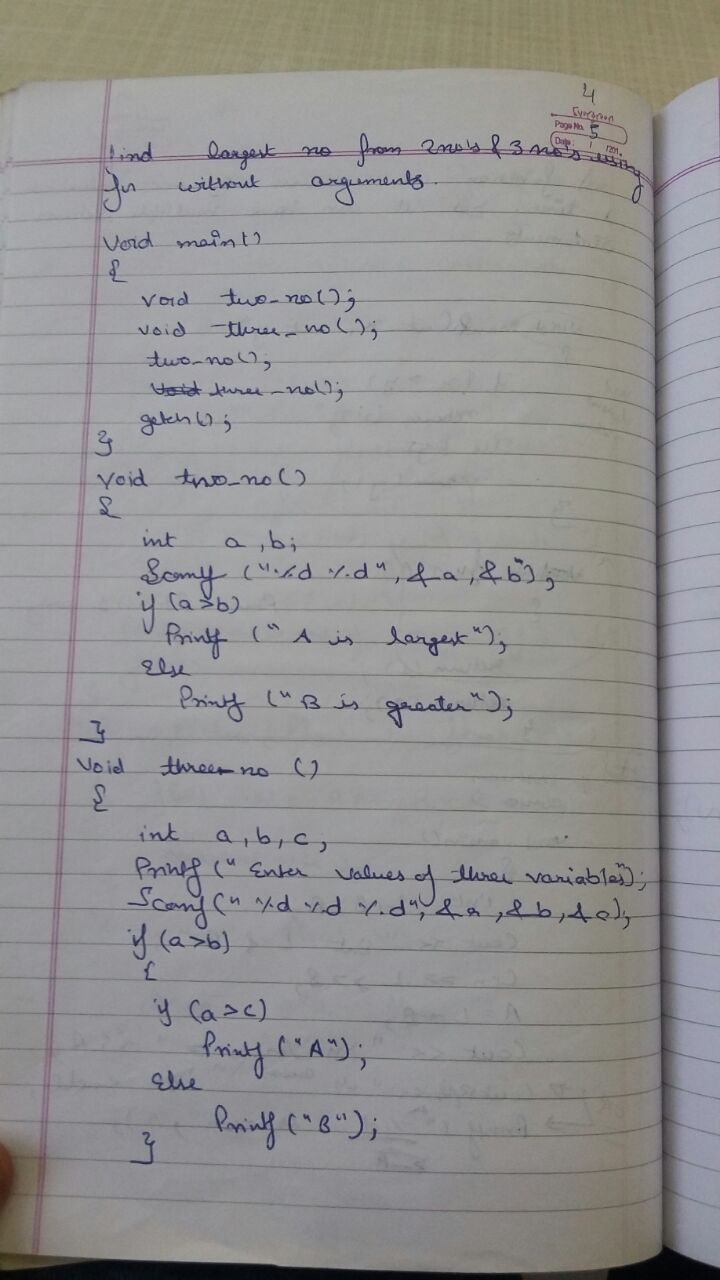 4
Evergreen
Page No. 5
Date: / /201
Find largest no from 2no's & 3 no's using
fn without arguments.
void main()
{
void two_no();
void three_no();
two_no();
void three_no();
getch();
}
void two_no()
{
int a,b;
Scanf ("%d %d", &a, &b");
if (a>b)
Printf (" A is largest");
Else
Printf ("B is greater");
}
void three_no ()
{
int a, b, c,
Printf (" Enter values of three variables");
Scanf (" %d %d %d", &a, &b, &c);
if (a>b)
{
if (a>c)
Printf ("A");
Else
Printf ("B");
}